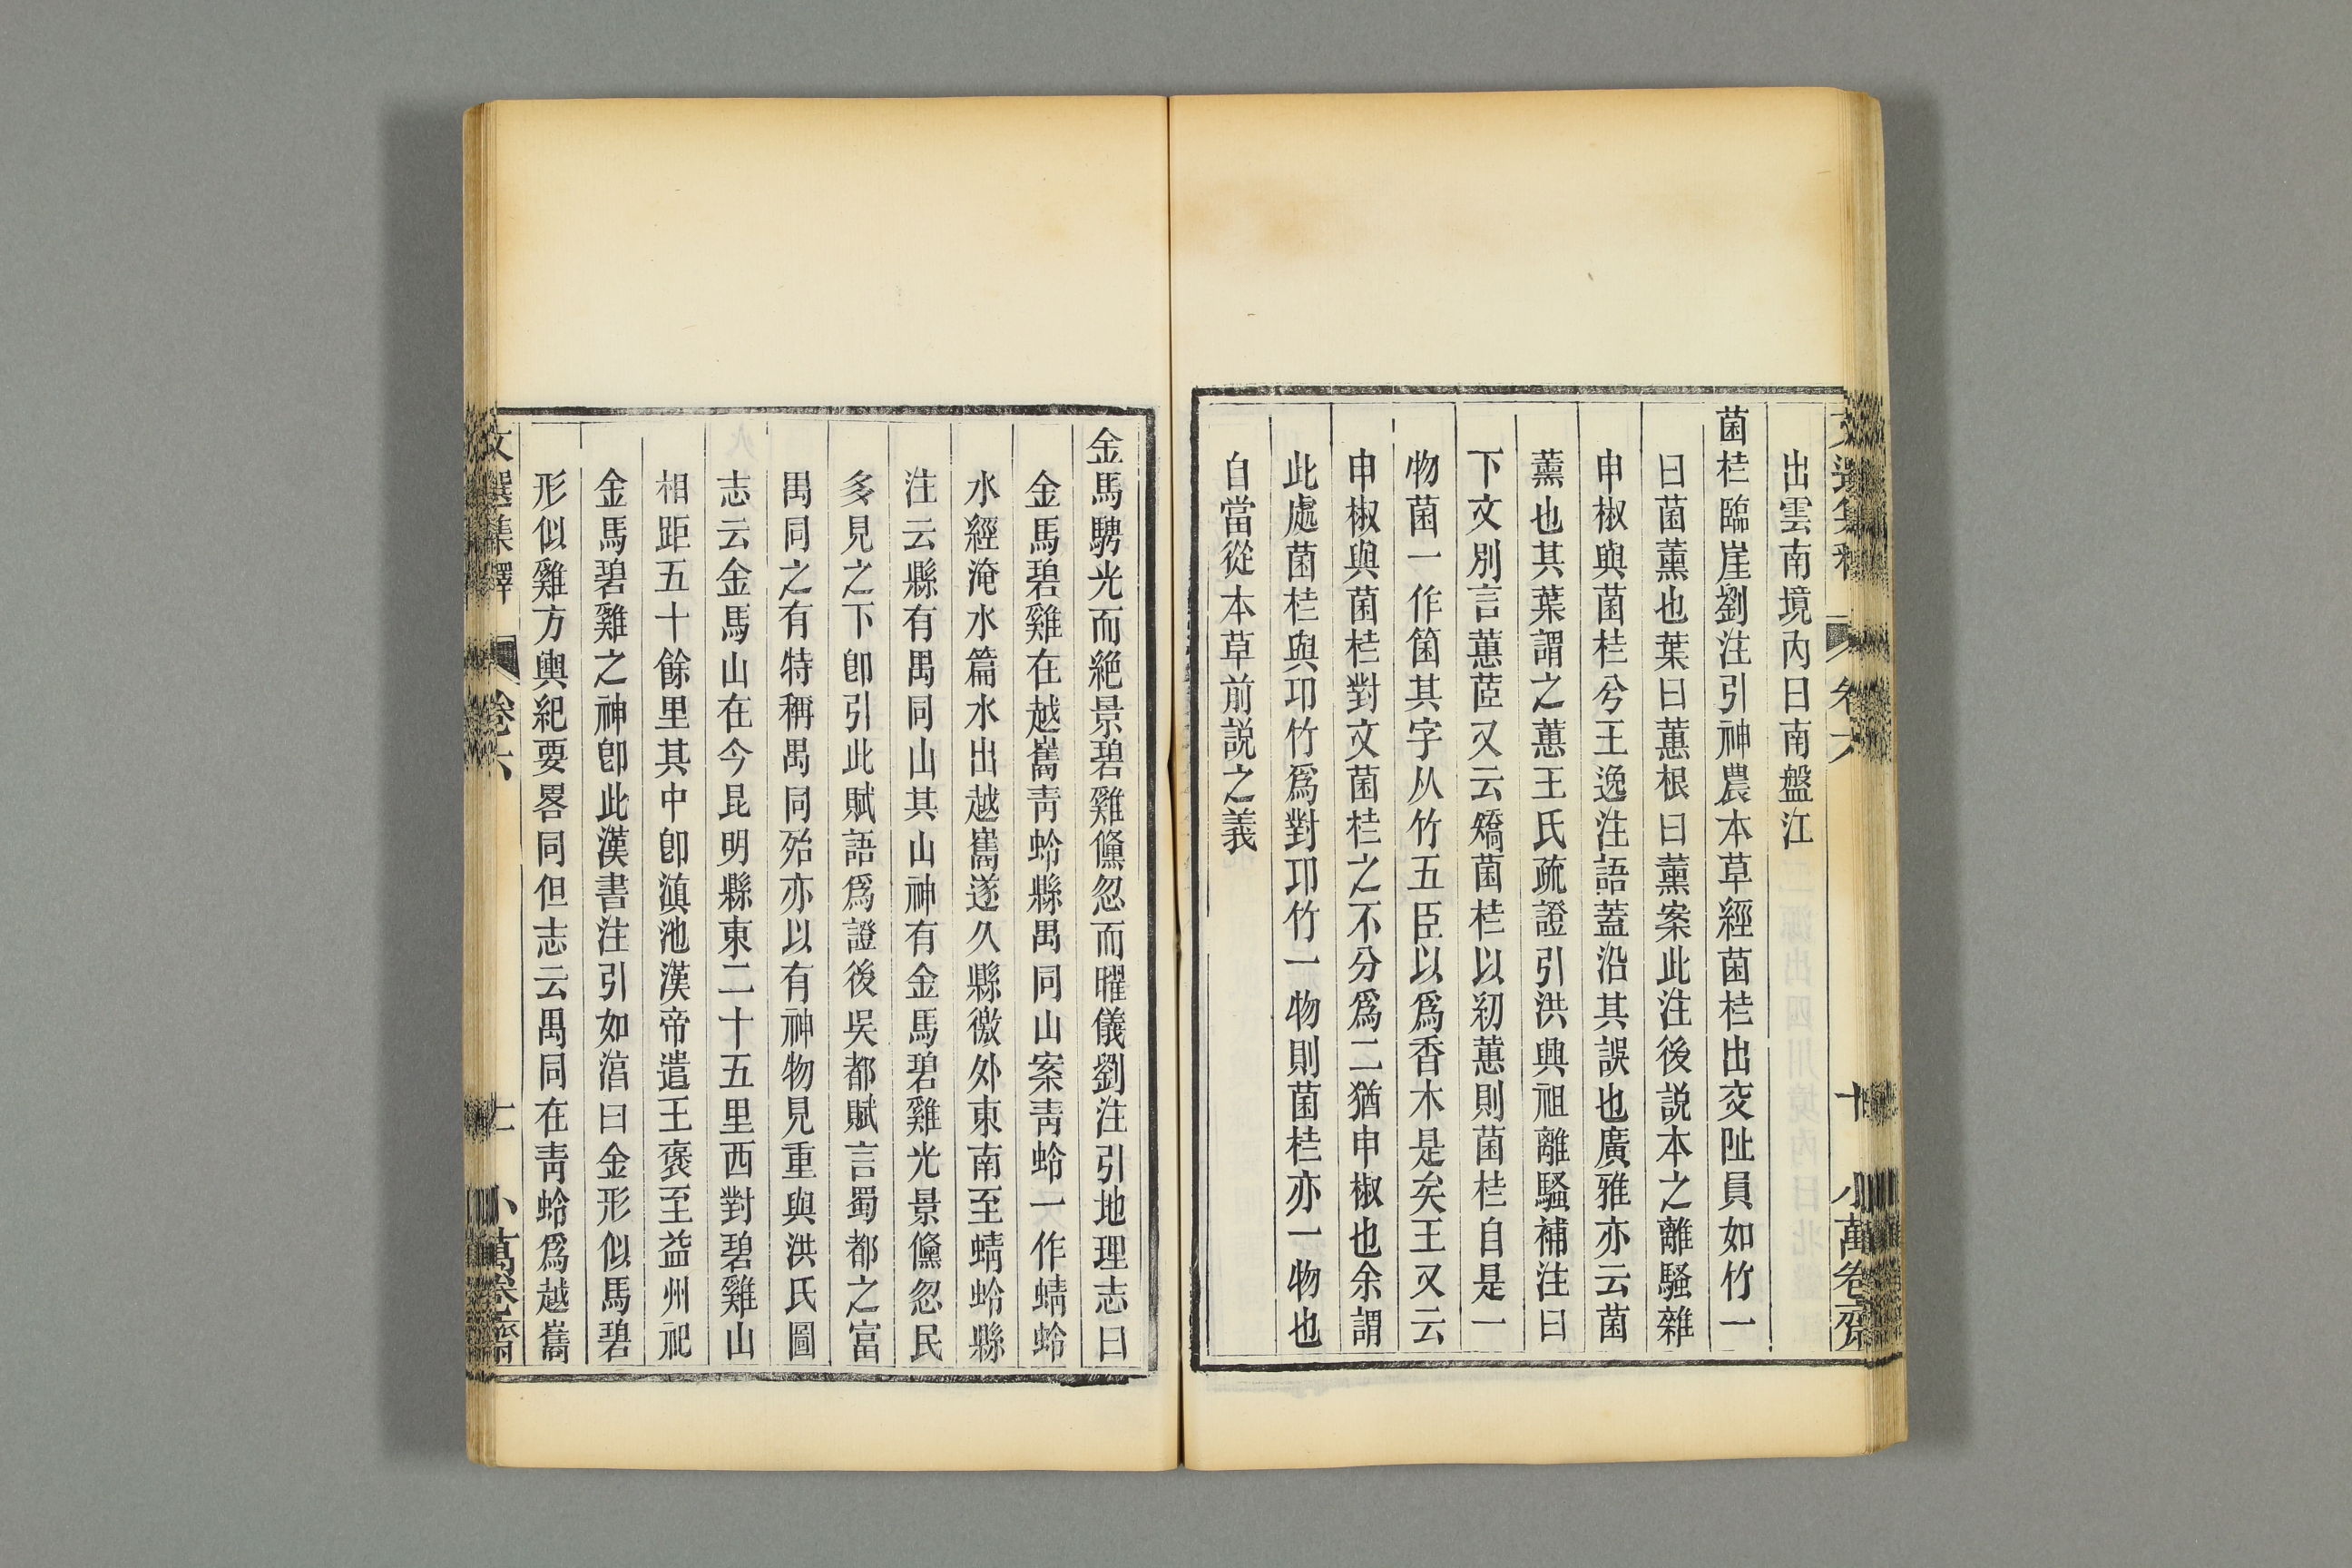 文選集釋 卷六 十 小萬卷齋
出雲南境內曰南盤江
菌桂臨崖劉注引神農本草經菌桂出交阯員如竹一
曰菌薰也葉曰蕙根曰薰案此注後說本之離騷雜
申椒與菌桂兮王逸注語蓋沿其誤也廣雅亦云菌
薰也其葉謂之蕙王氏疏證引洪興祖離騷補注曰
下文別言蕙茝又云矯菌桂以紉蕙則菌桂自是一
物菌一作箘其字从竹五臣以爲香木是矣王又云
申椒與菌桂對文菌桂之不分爲二猶申椒也余謂
此處菌桂與邛竹爲對邛竹一物則菌桂亦一物也
自當從本草前說之義
金馬騁光而絕景碧雞儵忽而曜儀劉注引地理志曰
金馬碧雞在越巂青蛉縣禺同山案青蛉一作蜻蛉
水經淹水篇水出越巂遂久縣徼外東南至蜻蛉縣
注云縣有禺同山其山神有金馬碧雞光景儵忽民
多見之下卽引此賦語爲證後吳都賦言蜀都之富
禺同之有特稱禺同殆亦以有神物見重與洪氏圖
志云金馬山在今昆明縣東二十五里西對碧雞山
相距五十餘里其中卽滇池漢帝遣王褒至益州祀
金馬碧雞之神卽此漢書注引如淳曰金形似馬碧
形似雞方輿紀要畧同但志云禺同在青蛉爲越巂
文選集釋 卷六 十一 小萬卷齋